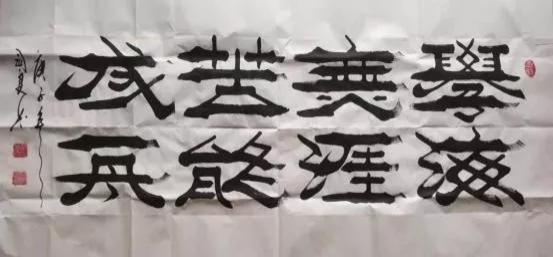 學海
無涯
苦能
成舟
庚子年